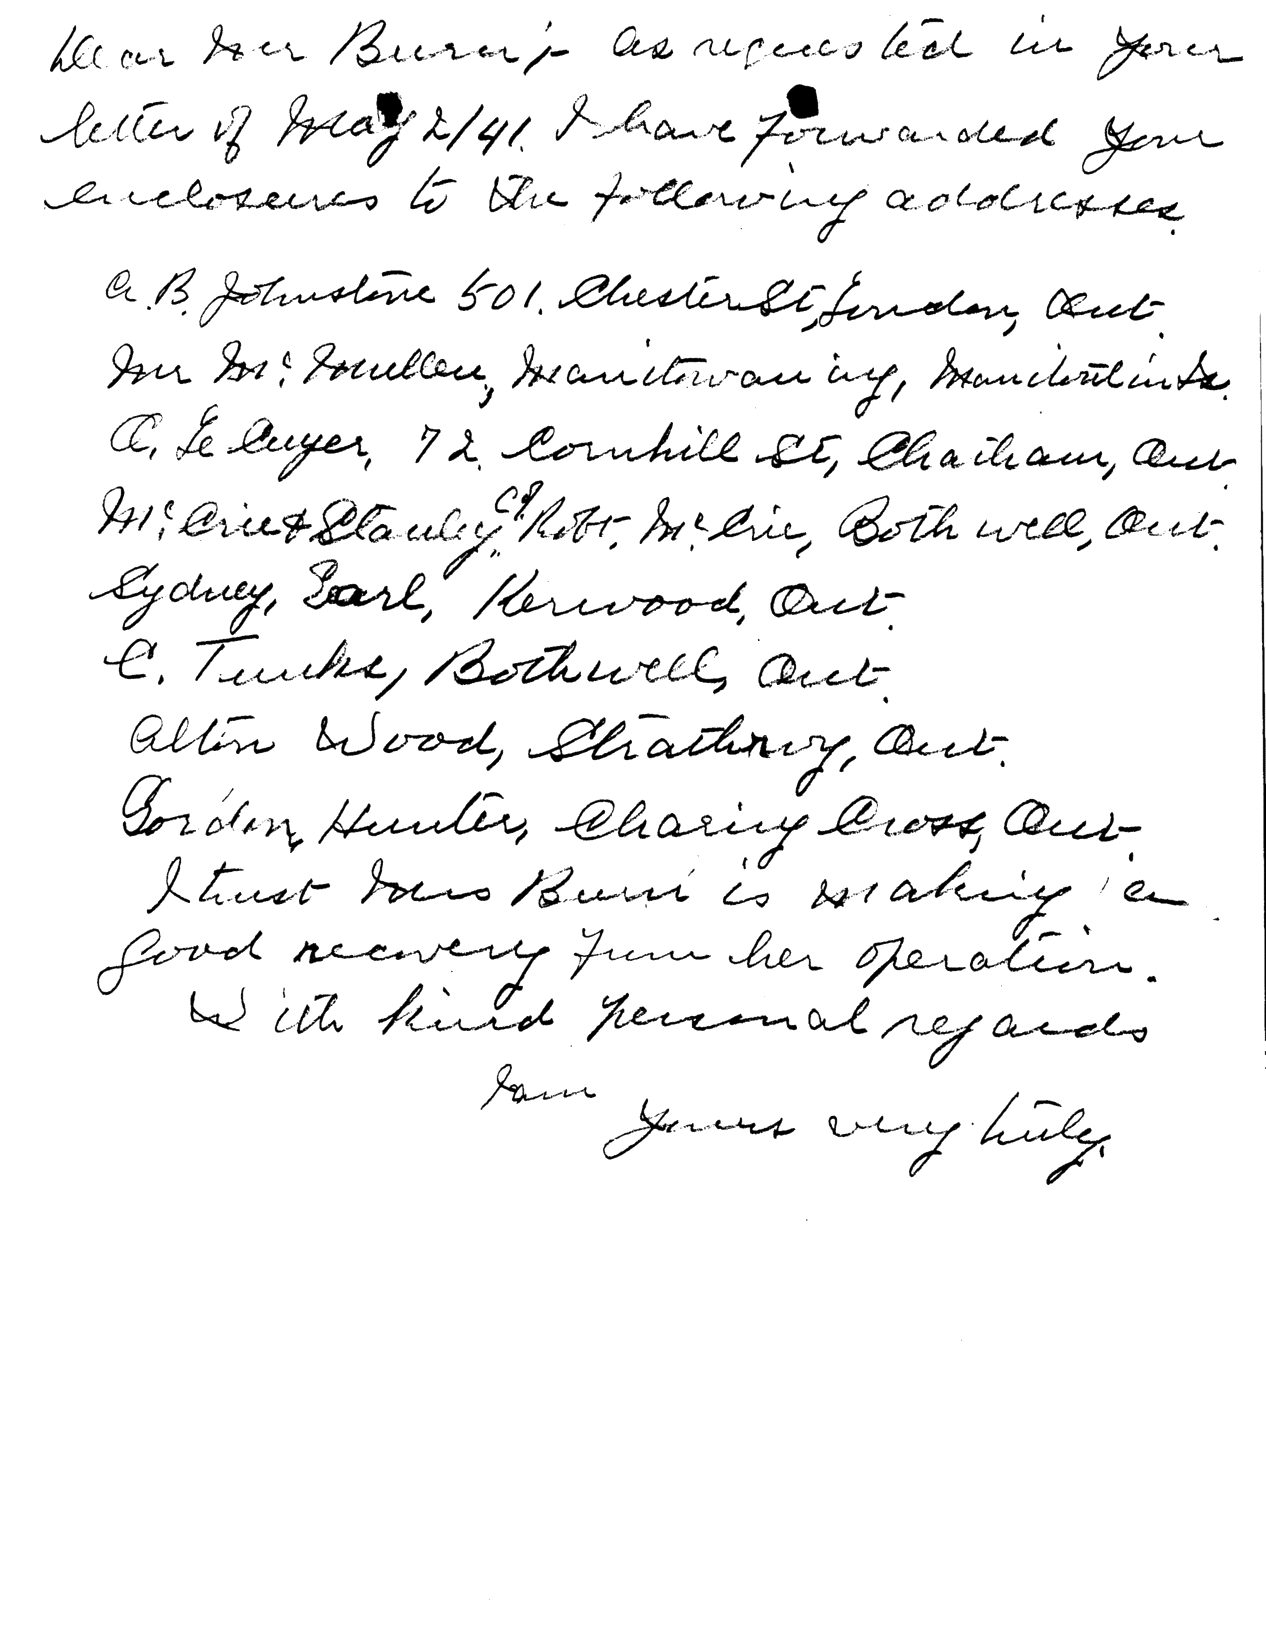 Dear Mr Burn;- As requested in your
letter of May 2/41. I have forwarded your
enclosures to the following addresses.
A. B. Johnstone 501. Chester St, London, Ont.
Mr McMullen, Manitowaning, Manitoulin Is.
A. Le Cuyer, 72. Cornhill St, Chatham, Ont.
McCrie & Stanley, C/o Robt. McCrie, Bothwell, Ont.
Sydney, Earl, Kerwood, Ont.
C. Tunks, Bothwell, Ont.
Alton Wood, Strathroy, Ont.
Gordon Hunter, Charing Cross, Ont.
I trust Mrs Burn is making a
good recovery from her operation.
With kind personal regards
I am
Yours very truly,